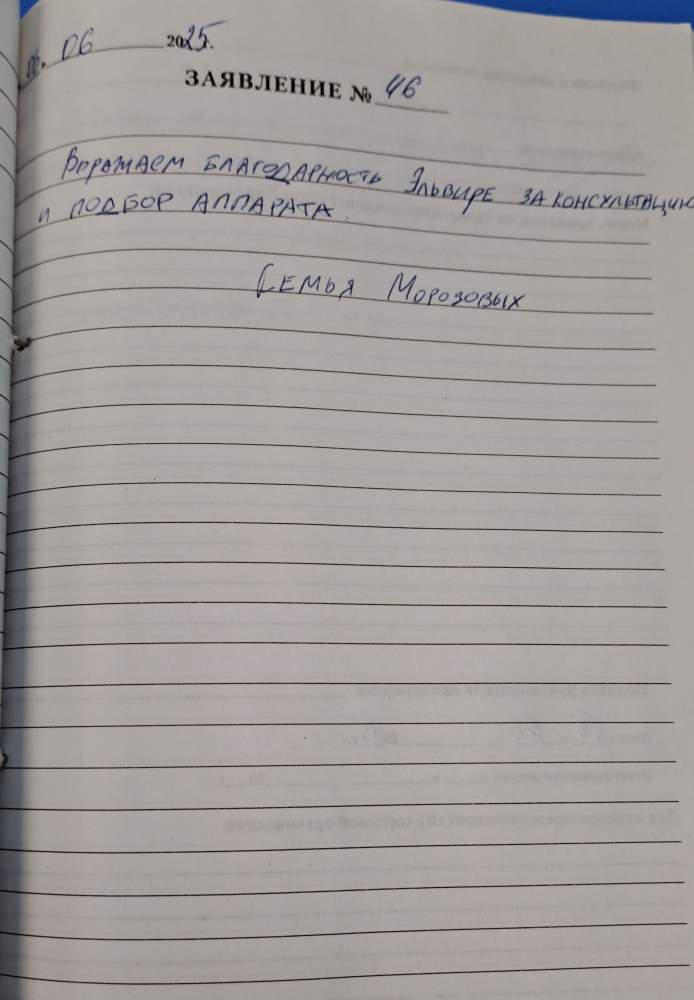 06. 06 2025г.
ЗАЯВЛЕНИЕ № 46
Выражаем благодарность Эльвире за консультацию
и подбор аппарата.
Семья Морозовых